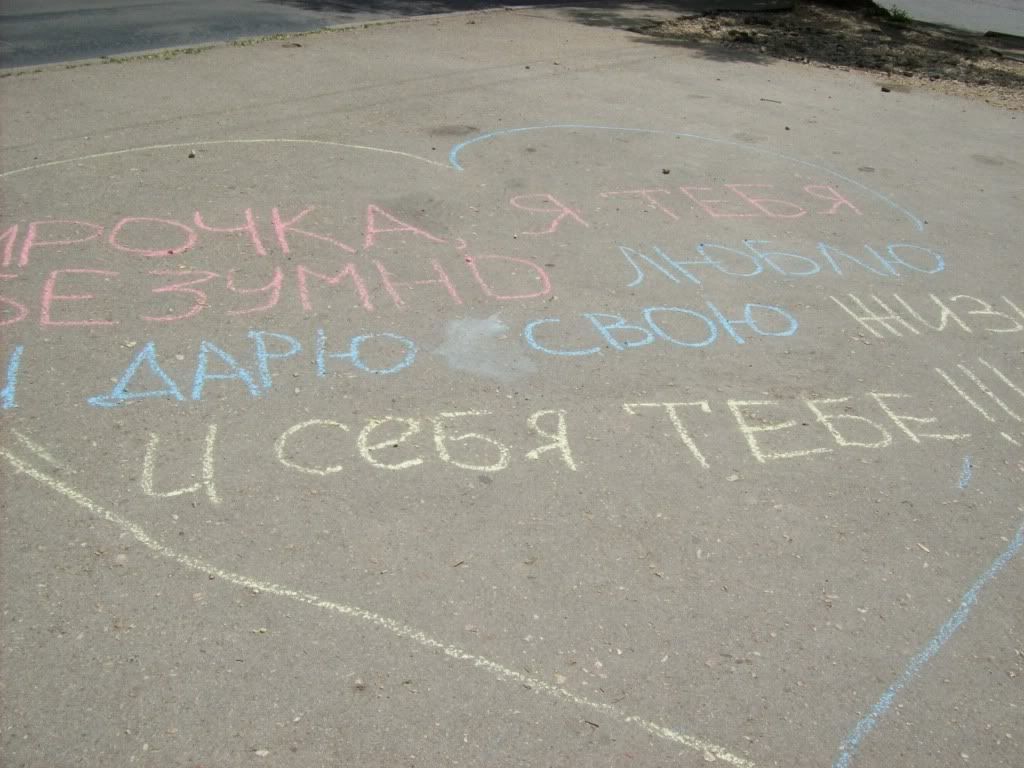 ИРОЧКА, Я ТЕБЯ
БЕЗУМНО ЛЮБЛЮ
И ДАРЮ СВОЮ ЖИЗН
И СЕБЯ ТЕБЕ!!!